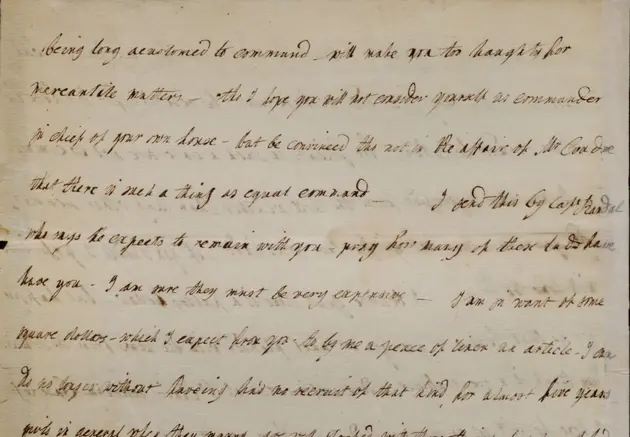 being long acustomed to command - will make you too haughty for
mercantile matters - tho I hope you will not consider yourself as commander
in cheif of your own house - but be convinced tho not in the affair of Mr Coudre
that there is such a thing as equal command - I send this by Capt Randal
who says he expects to remain with you - pray how many of these lads have
have you - I am sure they must be very expensive - I am in want of some
square dollars - which I expect from you to by me a peace of linen an article I can
do no longer without haveing had no recruit of that kind for almost five years
girls in general when they marry are well stocked with those